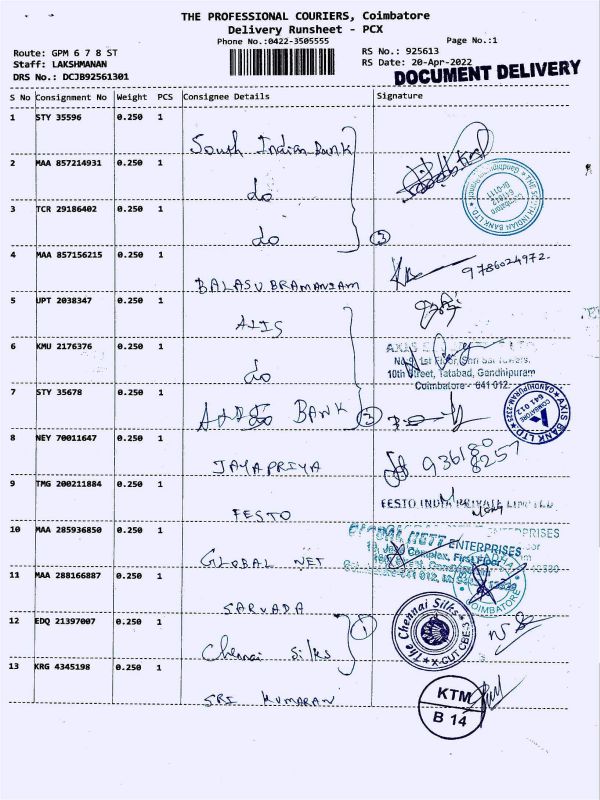 THE PROFESSIONAL COURIERS, Coimbatore
Delivery Runsheet - PCX
Phone No.:0422-3505555
Page No.:1
Route: GPM 6 7 8 ST
Staff: LAKSHMANAN
DRS No.: DCJB92561301
RS No.: 925613
RS Date: 20-Apr-2022
DOCUMENT DELIVERY
S No Consignment No Weight PCS Consignee Details Signature
1 STY 35596 0.250 1 South Indian Bank
2 MAA 857214931 0.250 1 do
THE SOUTH INDIAN BANK LTD. Gandhipuram Branch
Coimbatore
641012
3 TCR 29186402 0.250 1 do
3
4 MAA 857156215 0.250 1 BALASUBRAMANIAM 9786024972
5 UPT 2038347 0.250 1
6 KMU 2176376 0.250 1 do
AXIS
No.9, 1st Floor, Sri Sai Towers,
10th Street, Tatabad, Gandhipuram
Coimbatore - 641 012.
7 STY 35678 0.250 1 BANK
AXIS BANK LTD GANDHIPURAM-2325
COIMBATORE
641 012
8 NEY 70011647 0.250 1 JAYAPRIYA 936180 8257
9 TMG 200211884 0.250 1 FESTO
FESTO INDIA PRIVATE LIMITED
10 MAA 285936850 0.250 1 GLOBAL NET
GLOBAL NETT ENTERPRISES
Complex, First Floor
11 MAA 288166887 0.250 1 SARVADA
COIMBATORE
12 EDQ 21397007 0.250 1 Chennai Silks
1
The Chennai Silks
X-CUT CBE-3
13 KRG 4345198 0.250 1 SRI KUMARAN
KTM
B 14